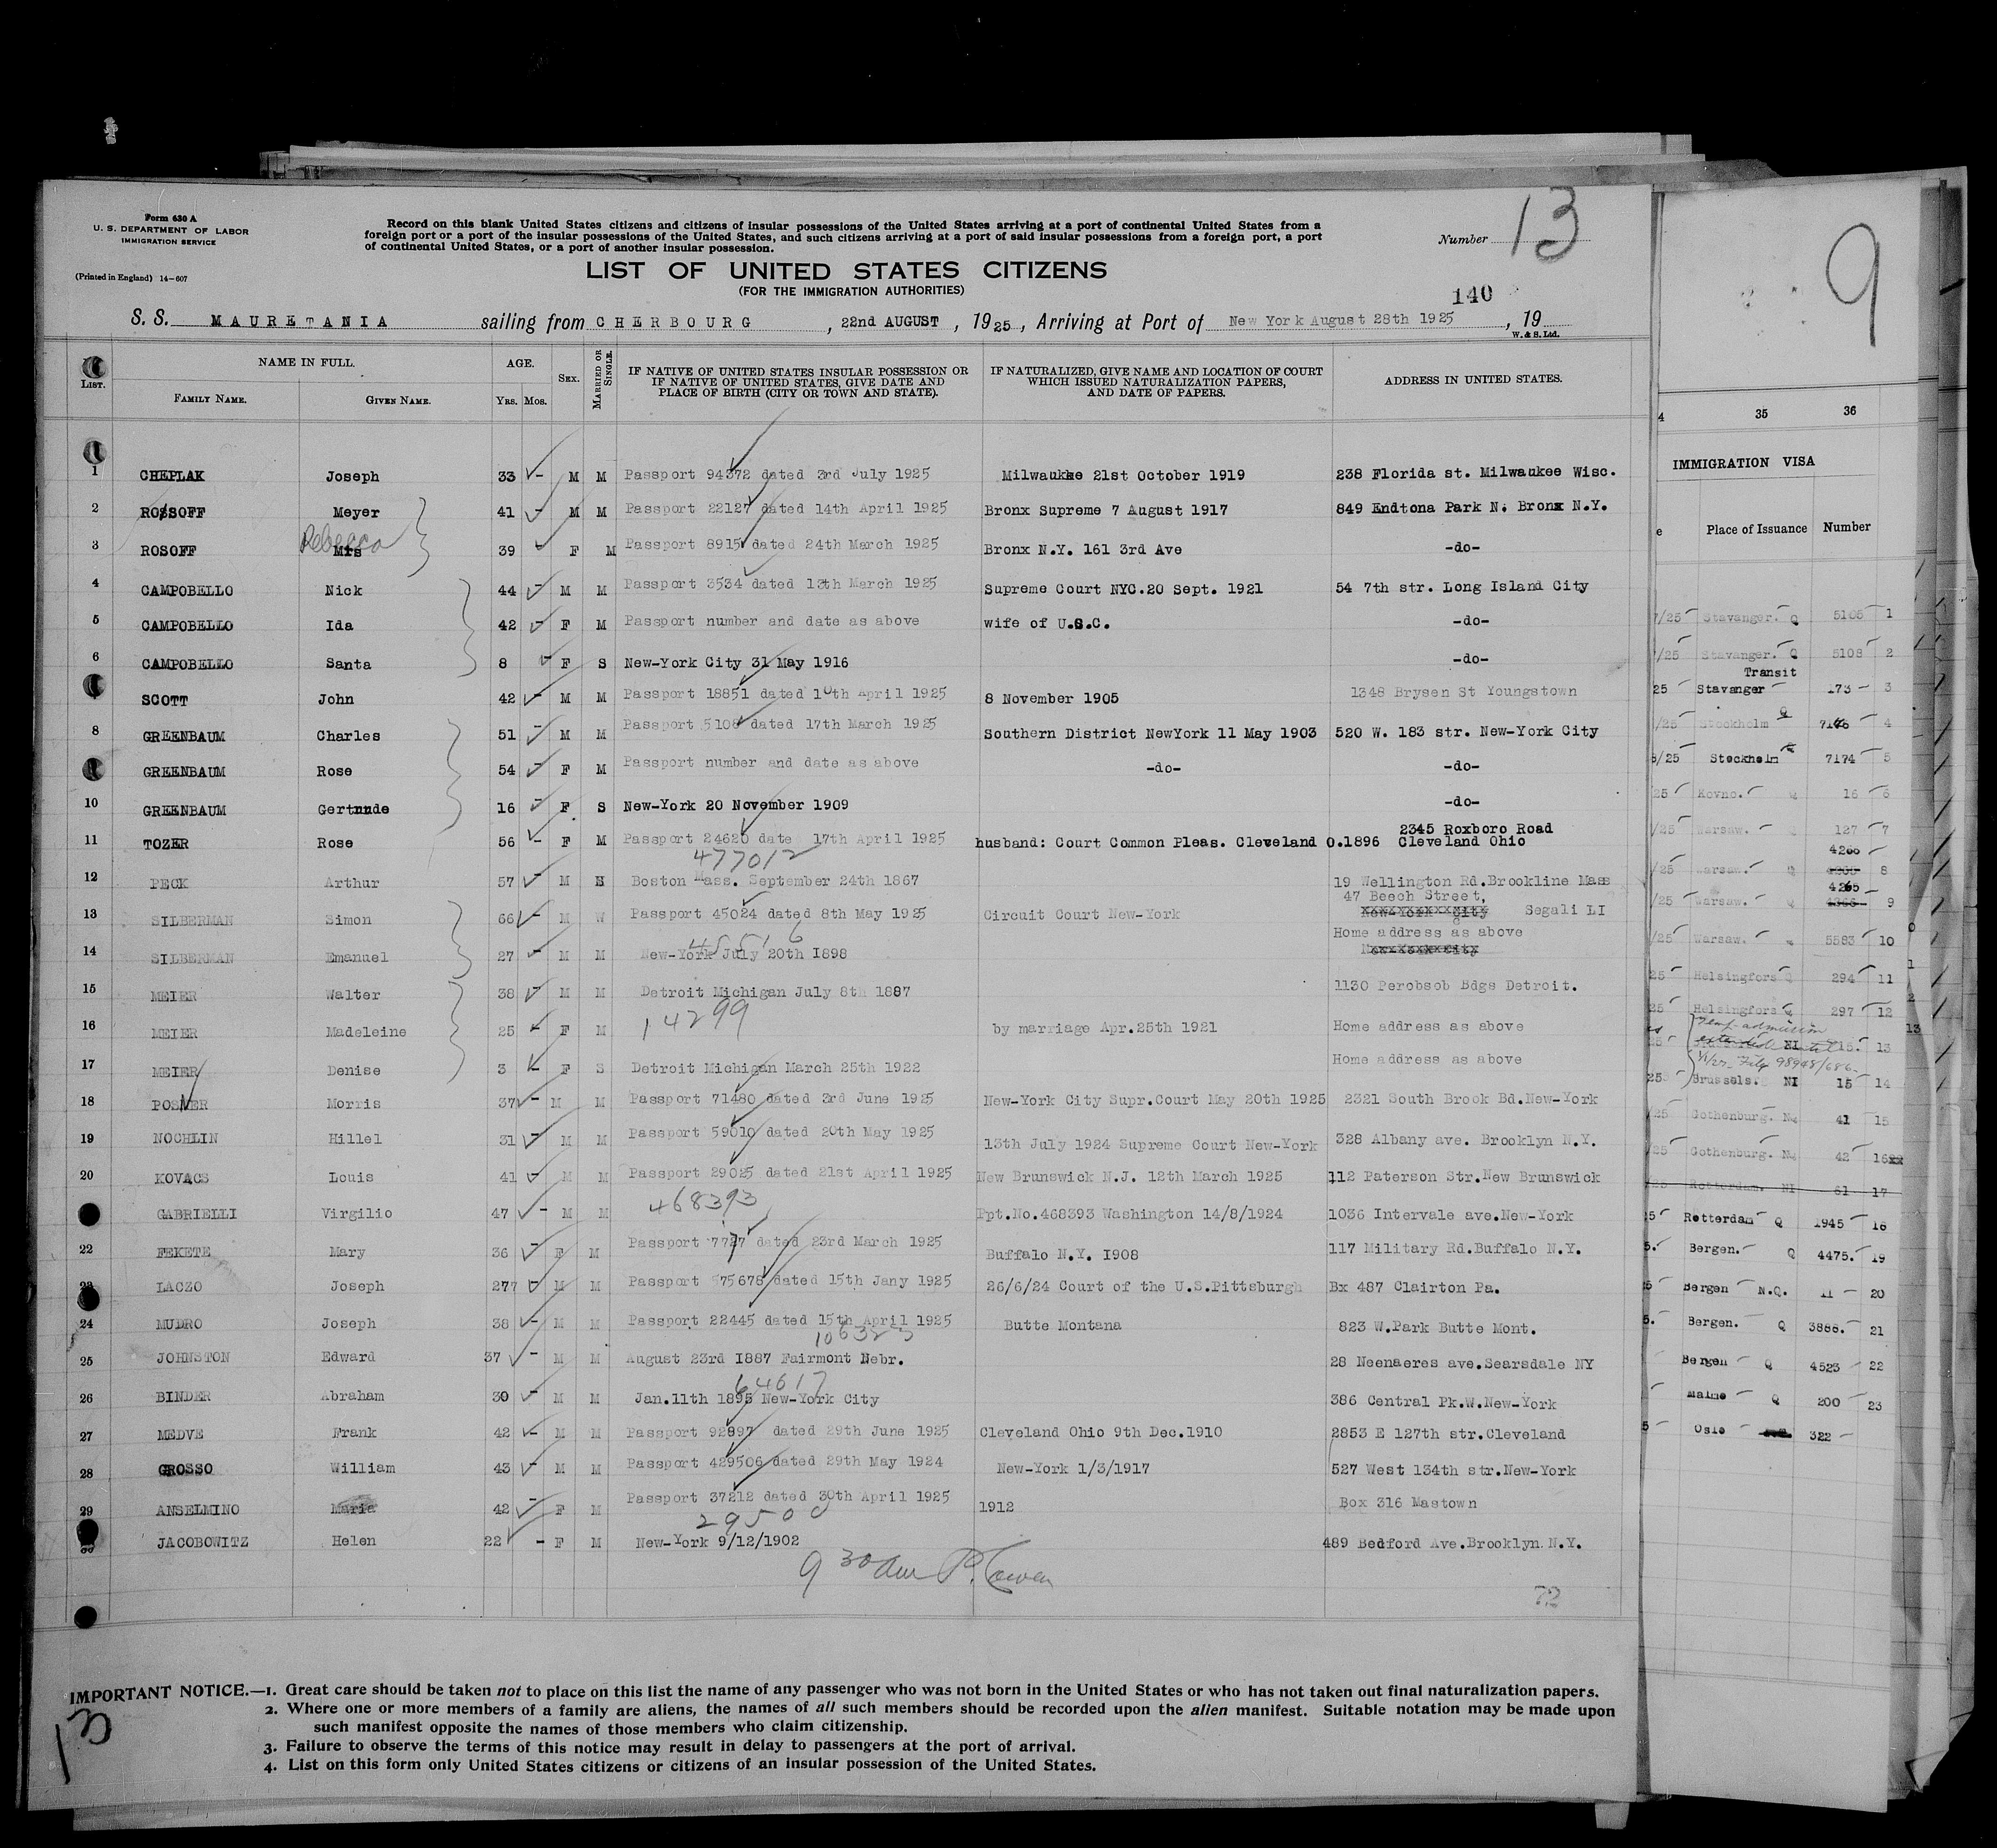 Form 630 A
U. S. DEPARTMENT OF LABOR
IMMIGRATION SERVICE
(Printed in England) 14—607
Record on this blank United States citizens and citizens of insular possessions of the United States arriving at a port of continental United States from a
foreign port or a port of the insular possessions of the United States, and such citizens arriving at a port of said insular possessions from a foreign port, a port
of continental United States, or a port of another insular possession.
Number 13
LIST OF UNITED STATES CITIZENS
(FOR THE IMMIGRATION AUTHORITIES)
140
S. S. MAURETANIA sailing from CHERBOURG, 22nd AUGUST, 1925, Arriving at Port of New York August 28th 1925, 19
W. & S. Ltd.
LIST. NAME IN FULL. AGE. SEX. MARRIED OR SINGLE. IF NATIVE OF UNITED STATES INSULAR POSSESSION OR IF NATIVE OF UNITED STATES, GIVE DATE AND PLACE OF BIRTH (CITY OR TOWN AND STATE). IF NATURALIZED, GIVE NAME AND LOCATION OF COURT WHICH ISSUED NATURALIZATION PAPERS, AND DATE OF PAPERS. ADDRESS IN UNITED STATES.
FAMILY NAME. GIVEN NAME. YRS. MOS.
1 CHEPLAK Joseph 33 - M M Passport 94372 dated 3rd July 1925 Milwaukke 21st October 1919 238 Florida st. Milwaukee Wisc.
2 ROSSOFF Meyer 41 - M M Passport 22127 dated 14th April 1925 Bronx Supreme 7 August 1917 849 Endtona Park N. Bronx N.Y.
Rebecca
3 ROSOFF Mrs 39 - F M Passport 8915 dated 24th March 1925 Bronx N.Y. 161 3rd Ave -do-
4 CAMPOBELLO Nick 44 - M M Passport 3534 dated 13th March 1925 Supreme Court NYC.20 Sept. 1921 54 7th str. Long Island City
5 CAMPOBELLO Ida 42 - F M Passport number and date as above wife of U.S.C. -do-
6 CAMPOBELLO Santa 8 - F S New-York City 31 May 1916 -do-
SCOTT John 42 - M M Passport 18851 dated 10th April 1925 8 November 1905 1348 Brysen St Youngstown
8 GREENBAUM Charles 51 - M M Passport 5108 dated 17th March 1925 Southern District NewYork 11 May 1903 520 W. 183 str. New-York City
GREENBAUM Rose 54 - F M Passport number and date as above -do- -do-
10 GREENBAUM Gertnnde 16 - F S New-York 20 November 1909 -do-
2345 Roxboro Road
11 TOZER Rose 56 - F M Passport 24620 date 17th April 1925 husband: Court Common Pleas. Cleveland O.1896 Cleveland Ohio
477012
12 PECK Arthur 57 - M S Boston Mass. September 24th 1867 19 Wellington Rd.Brookline Mass
47 Beech Street,
13 SILBERMAN Simon 66 - M W Passport 45024 dated 8th May 1925 Circuit Court New-York Segali LI
Home address as above
45516
14 SILBERMAN Emanuel 27 - M M New-York July 20th 1898
15 MEIER Walter 38 - M M Detroit Michigan July 8th 1887 1130 Perobsob Bdgs Detroit.
14299
16 MEIER Madeleine 25 - F M by marriage Apr.25th 1921 Home address as above
17 MEIER Denise 3 - F S Detroit Michigan March 25th 1922 Home address as above
18 POSNER Morris 37 - M M Passport 71480 dated 3rd June 1925 New-York City Supr.Court May 20th 1925 2321 South Brook Bd.New-York
19 NOCHLIN Hillel 31 - M M Passport 59010 dated 20th May 1925 13th July 1924 Supreme Court New-York 328 Albany ave. Brooklyn N.Y.
20 KOVACS Louis 41 - M M Passport 29025 dated 21st April 1925 New Brunswick N.J. 12th March 1925 112 Paterson Str.New Brunswick
468393
GABRIELLI Virgilio 47 - M M Ppt.No.468393 Washington 14/8/1924 1036 Intervale ave.New-York
22 FEKETE Mary 36 - F M Passport 7727 dated 23rd March 1925 Buffalo N.Y. 1908 117 Military Rd.Buffalo N.Y.
23 LACZO Joseph 277 M M Passport 575678 dated 15th Jany 1925 26/6/24 Court of the U.S.Pittsburgh Bx 487 Clairton Pa.
24 MUDRO Joseph 38 - M M Passport 22445 dated 15th April 1925 Butte Montana 823 W.Park Butte Mont.
106323
25 JOHNSTON Edward 37 - M M August 23rd 1887 Fairmont Nebr. 28 Neenaeres ave.Searsdale NY
64617
26 BINDER Abraham 30 - M M Jan.11th 1895 New-York City 386 Central Pk.W.New-York
27 MEDVE Frank 42 - M M Passport 92897 dated 29th June 1925 Cleveland Ohio 9th Dec.1910 2853 E 127th str.Cleveland
28 GROSSO William 43 - M M Passport 429506 dated 29th May 1924 New-York 1/3/1917 527 West 134th str.New-York
29 ANSELMINO Maria 42 - F M Passport 37212 dated 30th April 1925 1912 Box 316 Mastown
29500
JACOBOWITZ Helen 22 - F M New-York 9/12/1902 489 Bedford Ave.Brooklyn N.Y.
9 30 am P. Cowen
72
IMPORTANT NOTICE.—1. Great care should be taken not to place on this list the name of any passenger who was not born in the United States or who has not taken out final naturalization papers.
2. Where one or more members of a family are aliens, the names of all such members should be recorded upon the alien manifest. Suitable notation may be made upon
such manifest opposite the names of those members who claim citizenship.
3. Failure to observe the terms of this notice may result in delay to passengers at the port of arrival.
4. List on this form only United States citizens or citizens of an insular possession of the United States.
13
9
4 35 36
IMMIGRATION VISA
e Place of Issuance Number
/25 Stavanger. Q 5105 1
/25 Stavanger. Q 5108 2
Transit
25 Stavanger 173 3
/25 Stockholm Q 7146 4
/25 Stockholm 7174 5
25 Kovno. 16 6
/25 Warsaw. 127 7
4260
/25 Warsaw. Q 8
4265
/25 Warsaw. Q 9
/25 Warsaw. 5583 10
25 Helsingfors Q 294 11
25 Helsingfors Q 297 12
Temp admission
extended until
25 NI 15. 13
File 98948/686
25 Brussels. NI 15 14
/25 Gothenburg. NQ 41 15
/25 Gothenburg. NQ 42 16
25 Rotterdam. NI 61 17
5 Rotterdam Q 1945 18
5. Bergen. Q 4475. 19
5 Bergen N.Q. 11 20
5. Bergen. Q 3886. 21
Bergen Q 4523 22
Malmo Q 200 23
5 Oslo 322